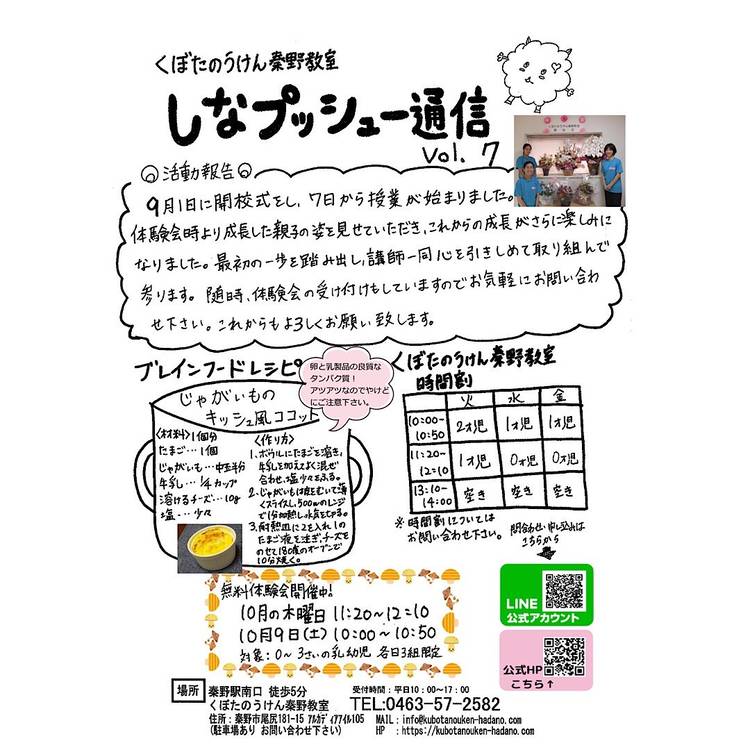 くぼたのうけん秦野教室
しなプッシュー通信
Vol. 7
◎活動報告◎
9月1日に開校式をし、7日から授業が始まりました。
体験会時より成長した親子の姿を見せていただき、これからの成長がさらに楽しみに
なりました。最初の一歩を踏み出し、講師一同心を引きしめて取り組んで
参ります。随時、体験会の受け付けもしていますのでお気軽にお問い合わ
せ下さい。これからもよろしくお願い致します。
ブレインフードレシピ
卵と乳製品の良質な
タンパク質！
アツアツなのでやけど
にご注意下さい。
じゃがいもの
キッシュ風ココット
<材料>1個分
たまご…1個
じゃがいも…中玉半分
牛乳…1/4カップ
溶けるチーズ…10g
塩…少々
<作り方>
1、ボウルにたまごを溶き、
牛乳を加えよく混ぜ
合わせ、塩少々をふる。
2、じゃがいもは皮をむいて薄
くスライスし、500wのレンジ
で1分加熱し水気をとる。
3、耐熱皿に2を入れ1の
たまご液を注ぎチーズを
のせて180度のオーブンで
10分焼く。
くぼたのうけん秦野教室
時間割
火 水 金
10:00~10:50 2才児 1才児 1才児
11:20~12:10 1才児 0才児 0才児
13:10~14:00 空き 空き 空き
※時間割については
お問い合わせ下さい。
問合わせ・申し込みは
こちらから
無料体験会開催中!
10月の木曜日 11:20~12:10
10月9日(土) 10:00~10:50
対象:0~3さいの乳幼児 各日3組限定
LINE
公式アカウント
公式HP
こちら↑
場所
秦野駅南口 徒歩5分
くぼたのうけん秦野教室
住所：秦野市尾尻181-15 ｱﾙｶﾃﾞｨｱｱｲﾙ105
(駐車場あり お問い合わせ下さい)
受付時間：平日10：00～17：00
TEL:0463-57-2582
MAIL：info@kubotanouken-hadano.com
HP ：https://kubotanouken-hadano.com